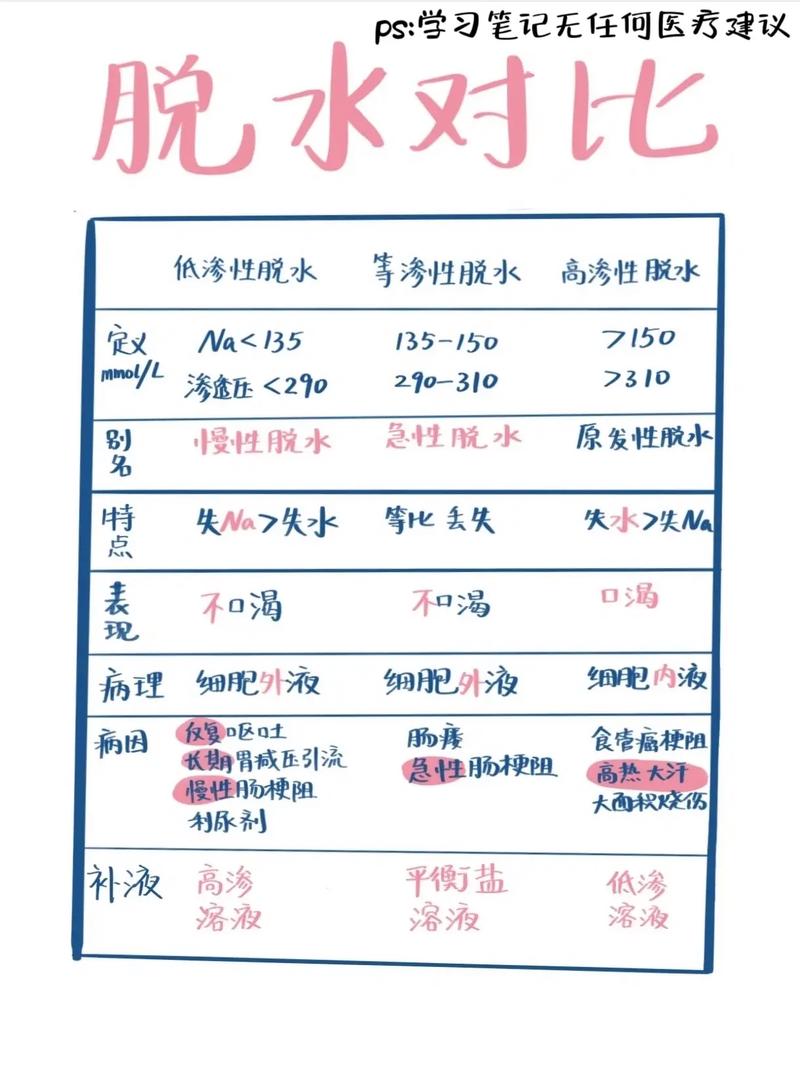 ps:学习笔记无任何医疗建议
脱水对比
低渗性脱水 等渗性脱水 高渗性脱水
定义 Na<135 135-150 >150
mmol/L 渗透压<290 290-310 >310
别名 慢性脱水 急性脱水 原发性脱水
特点 失Na>失水 等比丢失 失水>失Na
表现 不口渴 不口渴 口渴
病理 细胞外液 细胞外液 细胞内液
病因 反复呕吐 肠瘘 食管癌梗阻
长期胃减压引流 急性肠梗阻 高热大汗
慢性肠梗阻 大面积烧伤
利尿剂
补液 高渗 平衡盐 低渗
溶液 溶液 溶液